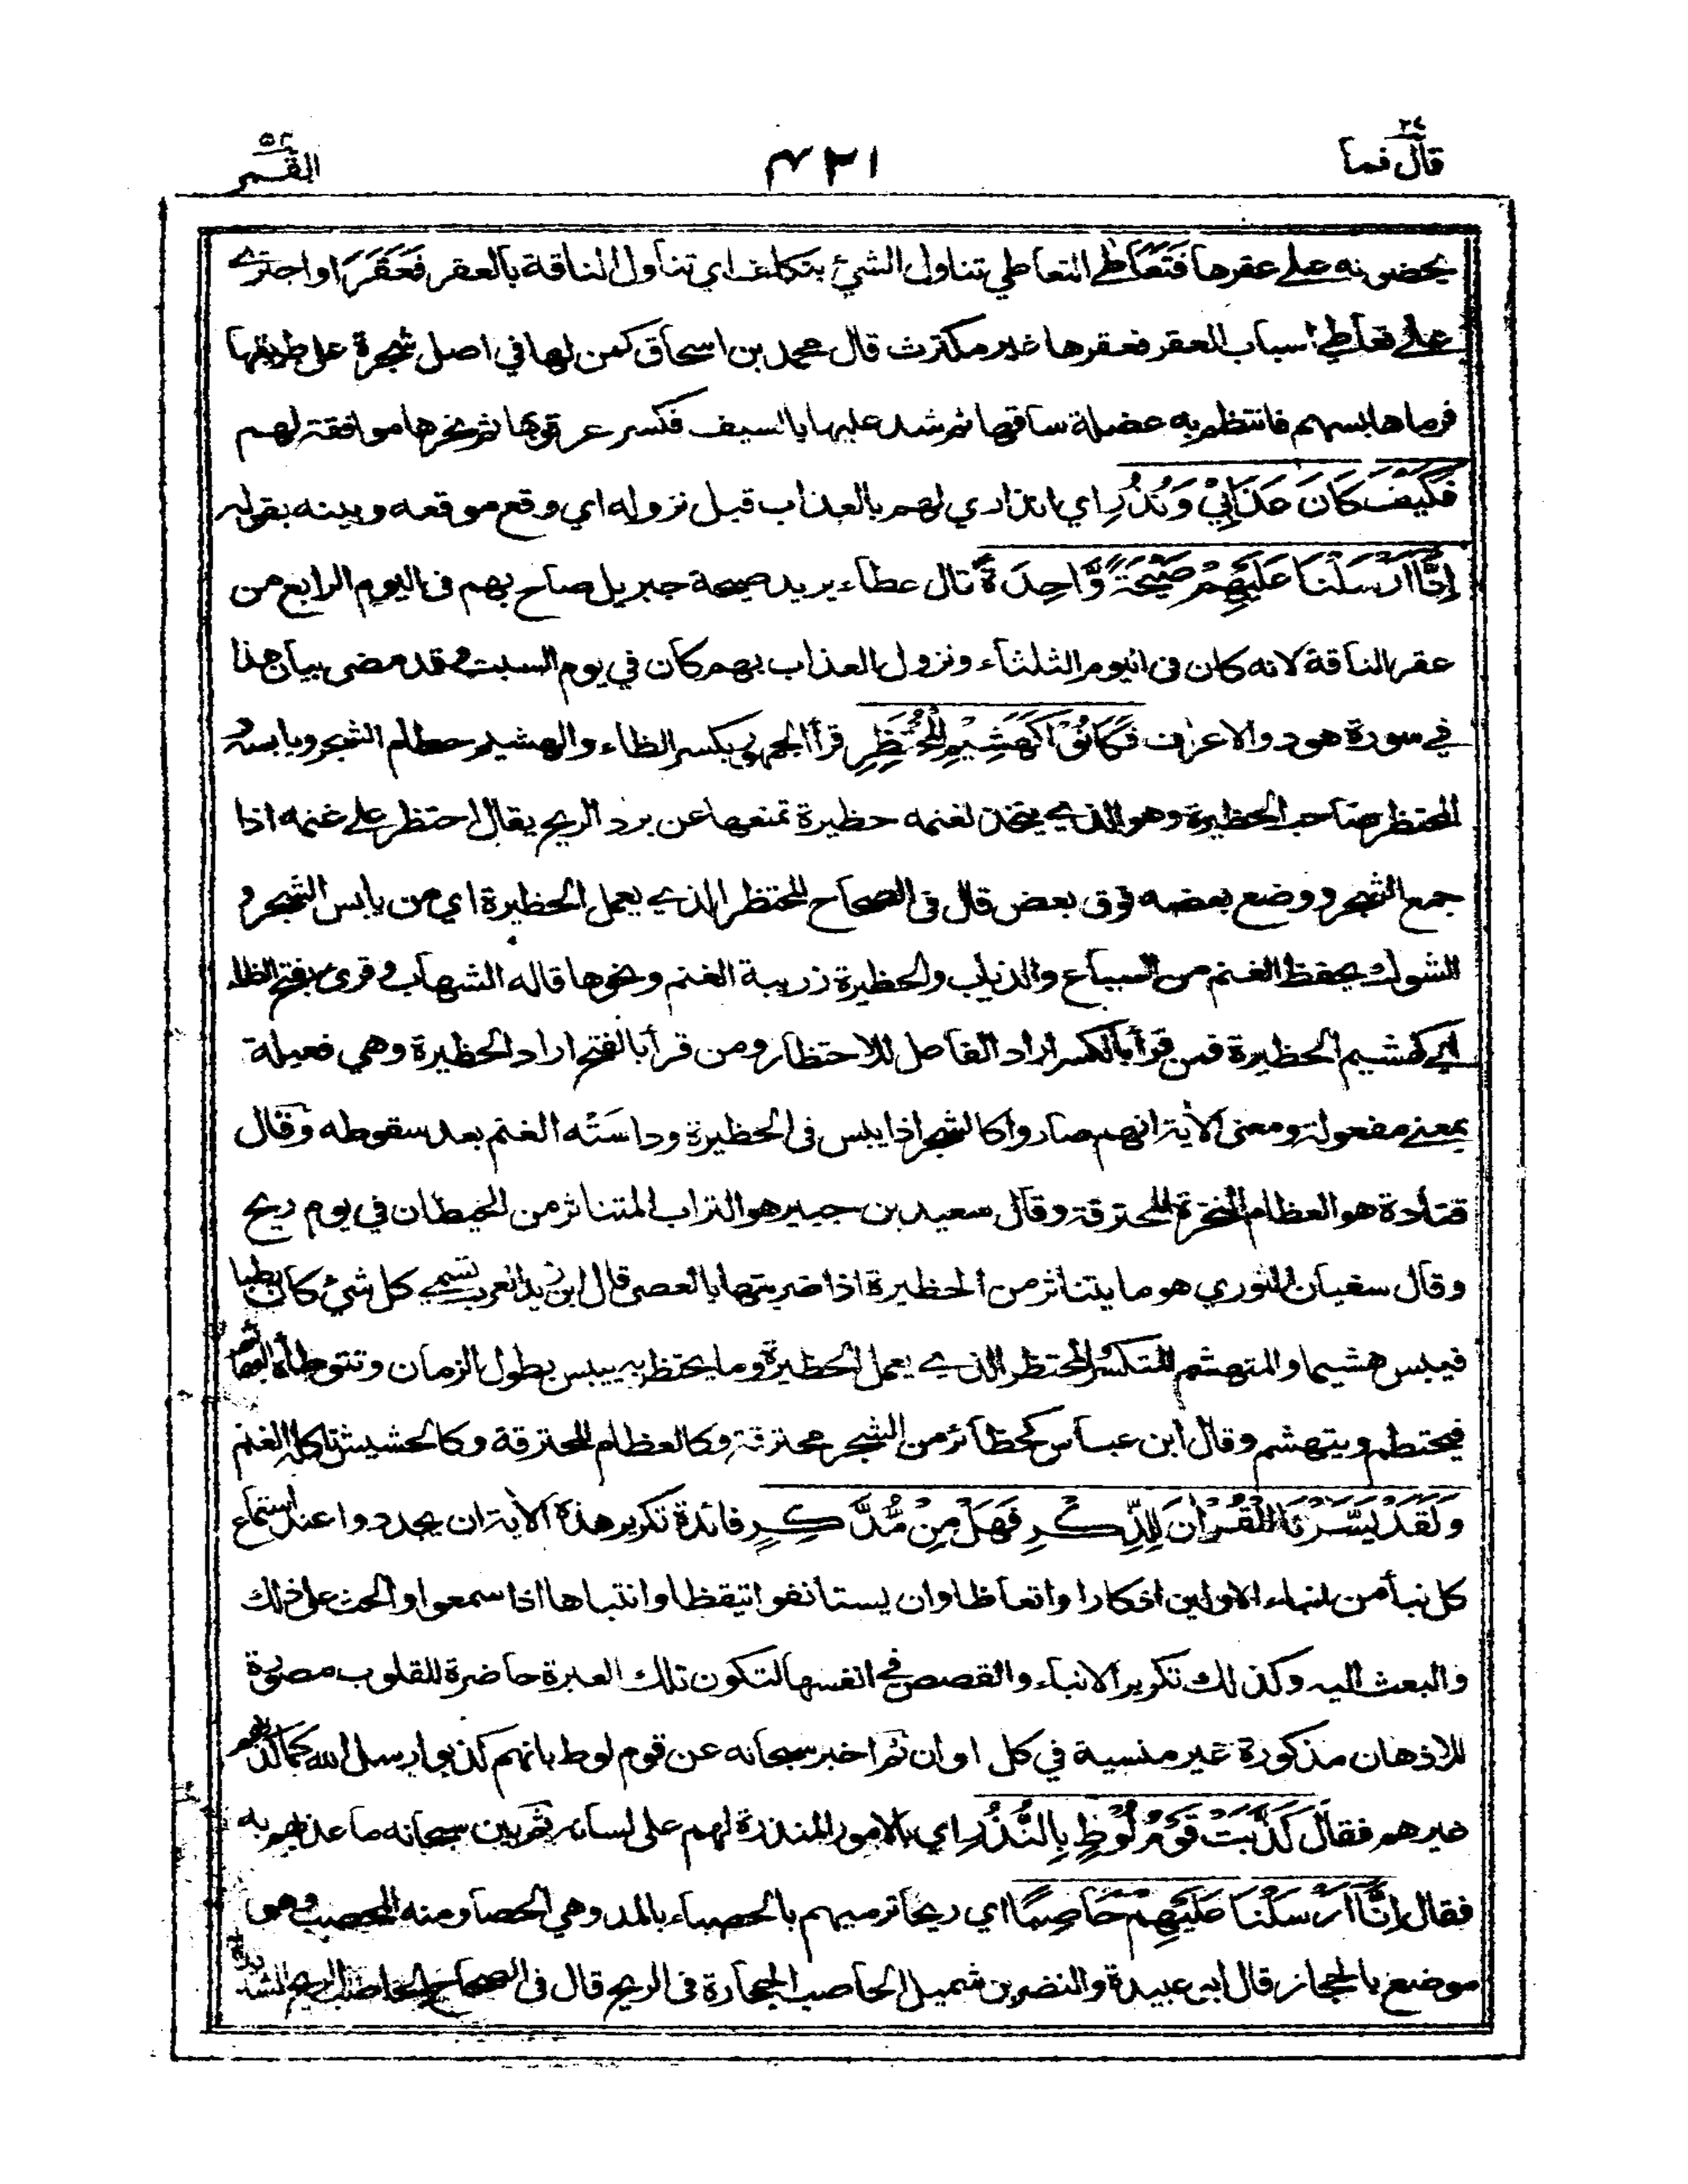 قال فما ٢٧
٤٢١
القمر ٥٤
يحضونه على عقرها فَتَعَاطٰى التعاطي تناول الشيء بتكلف اي تناول الناقة بالعقر فَعَقَرَ او اجترے
على تعاطي اسباب العقر فعقرها غير مكترث قال محمد بن اسحاق كمن لها في اصل شجرة على طريقها
فرماها بسهم فانتظم به عضلة ساقها ثم شد عليها بالسيف فكسر عرقوبها ثم نحرها موافقة لهم
فَكَيْفَ كَانَ عَذَابِيْ وَنُذُرِ اي انذاري لهم بالعذاب قبل نزوله اي وقع موقعه وبينه بقوله
اِنَّا اَرْسَلْنَا عَلَيْهِمْ صَيْحَةً وَّاحِدَةً قال عطاء يريد صيحة جبريل صاح بهم فى اليوم الرابع من
عقر الناقة لانه كان فى اليوم الثلثاء ونزول العذاب بهم كان في يوم السبت وقد مضى بيان هذا
في سورة هود والاعراف فَكَانُوْا كَهَشِيْمِ الْمُحْتَظِرِ قرأ الجمهور بكسر الظاء والهشيم حطام الشجر ويابسه و
المحتظر صاحب الحظيرة وهو الذي يتخذ لغنمه حظيرة تمنعها عن برد الريح يقال احتظر على غنمه اذا
جمع الشجر ووضع بعضه فوق بعض قال فى الصحاح المحتظر الذي يعمل الحظيرة اي من يابس الشجر و
الشوك يحفظ الغنم من السباع والذياب والحظيرة زريبة الغنم ونحوها قاله الشهاب وقرئ بفتح الظاء
اي كهشيم الحظيرة فمن قرأ بالكسر اراد الفاعل للاحتظار ومن قرأ بالفتح اراد الحظيرة وهي فعيلة
بمعنى مفعولة ومعنى الاية انهم صاروا كالشجر اذا يبس فى الحظيرة وداسته الغنم بعد سقوطه وقال
قتادة هو العظام النخرة المحترقة وقال سعيد بن جبير هو التراب المتناثر من الحيطان في يوم ريح
وقال سفيان الثوري هو ما يتناثر من الحظيرة اذا ضربتها بالعصى قال ابن زيد العرب تسمي كل شيء كان رطبا
فيبس هشيما والمتهشم المتكسر والمحتظر الذي يعمل الحظيرة وما يحتظر به ييبس بطول الزمان وتتوطأه البهائم
فيحتطم ويتهشم وقال ابن عباس كحظائر من الشجر محترقة وكالعظام المحترقة وكالحشيش تاكله الغنم
وَلَقَدْ يَسَّرْنَا الْقُرْاٰنَ لِلذِّكْرِ فَهَلْ مِنْ مُّدَّكِرٍ فائدة تكرير هذه الاية ان يجددوا عند استماع
كل نبأ من انباء الاولين اذكارا واتعاظا وان يستانفوا تيقظا وانتباها اذا سمعوا والحث على ذلك
والبعث اليه وكذلك تكرير الانباء والقصص في انفسها لتكون تلك العبرة حاضرة للقلوب مصورة
للاذهان مذكورة غير منسية في كل اوان ثم اخبر سبحانه عن قوم لوط بانهم كذبوا رسل الله كما كذبهم
غيرهم فقال كَذَّبَتْ قَوْمُ لُوْطٍ بِالنُّذُرِ اي بالامور المنذرة لهم على لسانه ثم بين سبحانه ما عذبهم به
فقال اِنَّا اَرْسَلْنَا عَلَيْهِمْ حَاصِبًا اي ريحا ترميهم بالحصباء بالمد وهي الحصا ومنه المحصب وهو
موضع بالحجاز قال ابو عبيدة والنضر بن شميل الحاصب الحجارة فى الريح قال فى الصحاح الحاصب الريح الشديدة